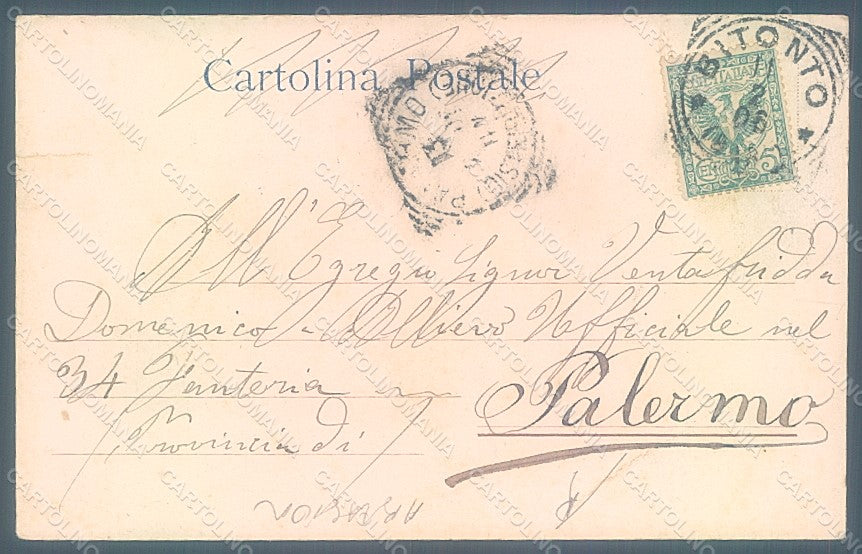 Cartolina Postale
BITONTO
All'Egregio Signor Ventafridda
Domenico - Allievo Ufficiale nel
34 Fanteria
Palermo
Provincia di
CARTOLINOMANIA